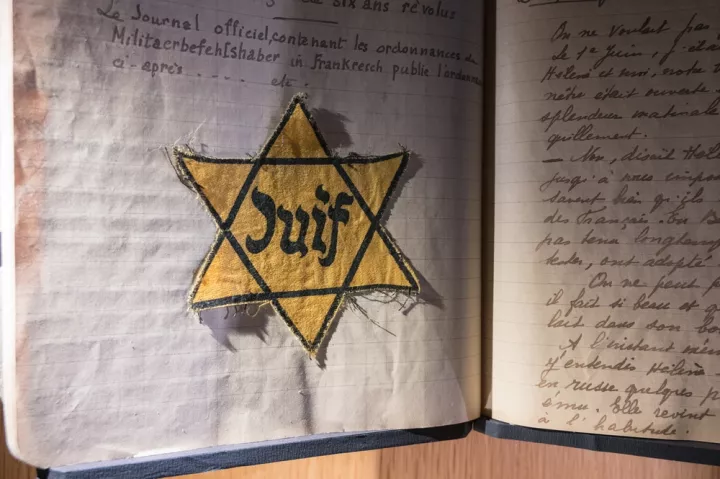 six ans révolus
Le Journal officiel, contenant les ordonnances du
Militaerbefehlshaber in Frankresch publie l'ordonnance
ci-après . . . . etc.
Juif
On ne voulait pas
le 1er Juin, j'étai
Hélène et moi, notre
nêtre était ouverte
splendeur matinale
quillement.
— Non, disait Hél
jusqu'à nous impos
savent bien qu'ils
des Français. En B
pas tenu longtemp
ont adopté
On ne peut p
il fait si beau et q
lait dans son bo
A l'instant mêm
j'entendis Hélène
en russe quelques p
émue. Elle revint
à l'habitude.